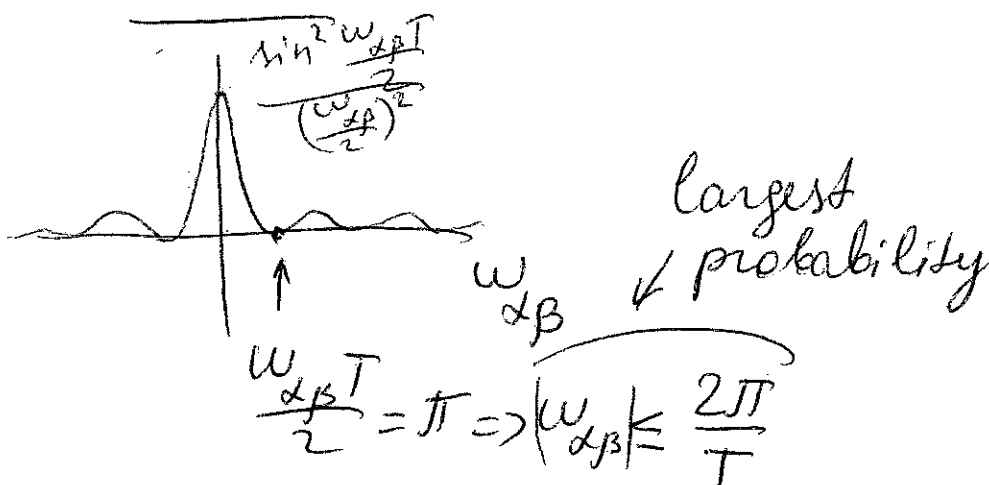 sin² ω_αβ T / 2
(ω_αβ / 2)²
largest
probability
ω_αβ
ω_αβ T / 2 = π => |ω_αβ| ≤ 2π / T